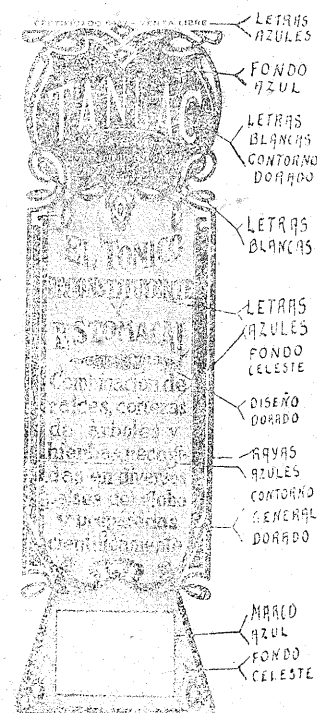 VENTA LIBRE
TANLAC
EL TONICO
Y
ESTOMACAL
Combinacion de
raices, cortezas
de árboles y
hierbas recogi-
das en diversos
paises del Globo
y preparadas
cientificamente
LETRAS
AZULES
FONDO
AZUL
LETRAS
BLANCAS
CONTORNO
DORADO
LETRAS
BLANCAS
LETRAS
AZULES
FONDO
CELESTE
DISEÑO
DORADO
RAYAS
AZULES
CONTORNO
GENERAL
DORADO
MARCO
AZUL
FONDO
CELESTE